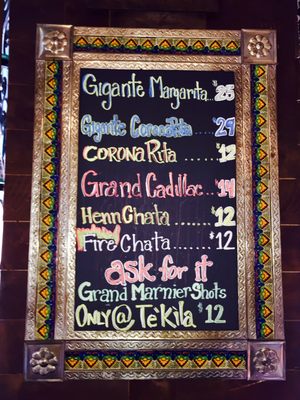 Gigante Margarita...$25
Gigante CoronaRita....$29
CORONA Rita ......$12
Grand Cadillac...$14
HennChata ....$12
FireChata.......$12
ask for it
Grand Marnier Shots
ONLY @ Te'Kila $12